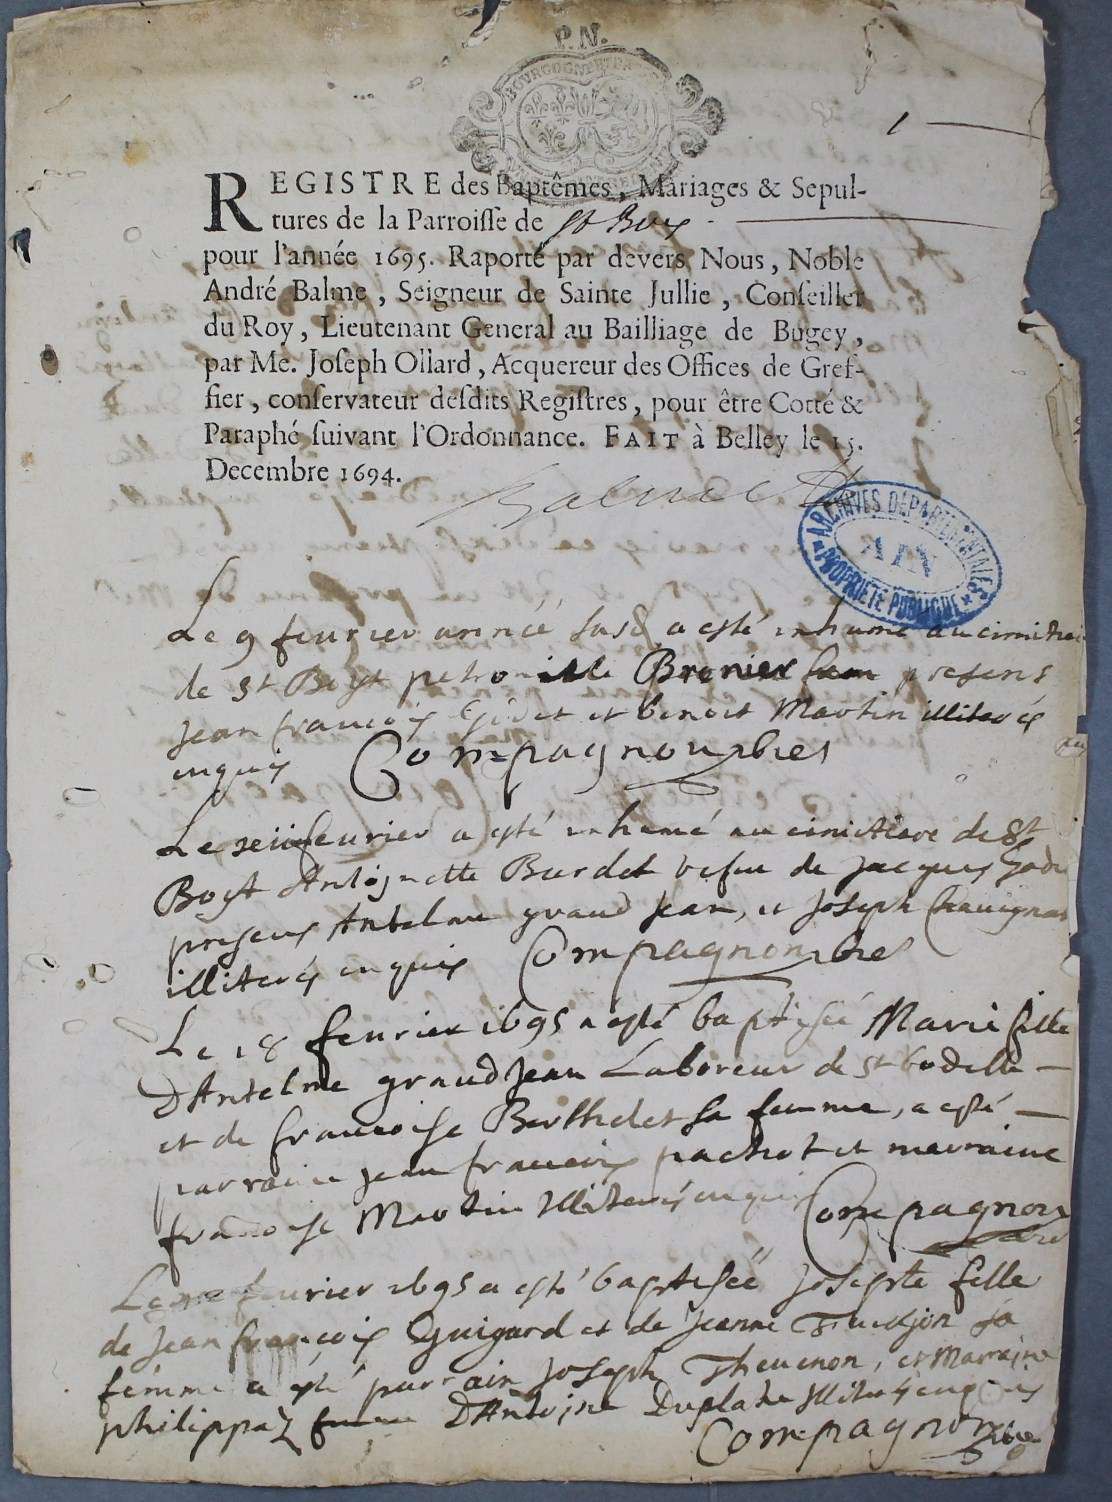 P.N.
BOURGOGNE ET BRESSE
1
REGISTRE des Baptêmes, Mariages & Sepul-
tures de la Parroisse de St Bois
pour l'année 1695. Raporté par devers Nous, Noble
André Balme, Seigneur de Sainte Jullie, Conseiller
du Roy, Lieutenant General au Bailliage de Bugey,
par Me. Joseph Ollard, Acquereur des Offices de Gref-
fier, conservateur desdits Registres, pour être Cotté &
Paraphé suivant l'Ordonnance. FAIT à Belley le 15.
Decembre 1694.
Balme
ARCHIVES DEPARTEMENTALES
AIN
PROPRIÉTÉ PUBLIQUE
Le 9 feurier année susd a esté inhumé au cimitiere
de St Boys petronille Brenier presens
Jean françois et benoit Martin illiterés
enquis Compagnon vbre
Le feurier a esté inhumé au cimitiere de St
Boys Antoinette Burdet vefue de Jacques
presens Antelme grand Jean, et Joseph Chauignar
illiterés enquis Compagnon vbre
Le 18 feurier 1695 a esté baptisée Marie fille
D'Antelme grand Jean Laboreur de St bodille
et de francoise Berthelet sa femme, a esté
parrain Jean francois pachot et marraine
francoise Martin illiterés enquis Compagnon
vbre
Le feurier 1695 a esté baptisée Josepte fille
de Jean françois Guigard et de Jeanne sa
femme a esté parrain Joseph Theuenon, et Marraine
philippaz femme D'Antoine Duplatre illiterés enquis
Compagnon vbre